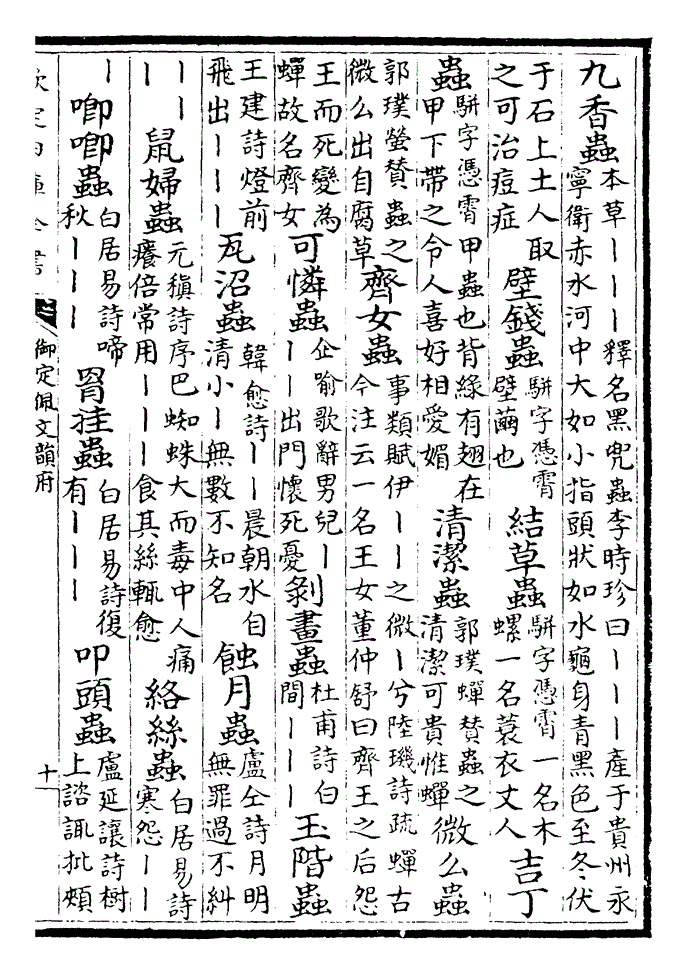 九香蟲本草丨丨丨釋名黑兜蟲李時珍曰丨丨丨產于貴州永
寧衛赤水河中大如小指頭狀如水龜身青黑色至冬伏
于石上土人取
之可治痘症
壁錢蟲駢字憑霄
壁繭也
結草蟲駢字憑霄一名木
螺一名蓑衣丈人
吉丁
蟲駢字憑霄甲蟲也背緑有翅在
甲下帶之令人喜好相愛媚
清潔蟲郭璞蟬賛蟲之
清潔可貴惟蟬
微么蟲
郭璞螢賛蟲之
微么出自腐草
齊女蟲事類賦伊丨丨之微丨兮陸璣詩疏蟬古
今注云一名王女董仲舒曰齊王之后怨
王而死變為
蟬故名齊女
可憐蟲企喻歌辭男兒丨
丨丨出門懷死憂
剝畫蟲杜甫詩白
間丨丨丨
玉階蟲
王建詩燈前
飛出丨丨丨
瓦沼蟲韓愈詩丨丨晨朝水自
清小丨無數不知名
蝕月蟲盧仝詩月明
無罪過不糾
丨丨
丨
鼠婦蟲元稹詩序巴蜘蛛大而毒中人痛
癢倍常用丨丨丨食其絲輒愈
絡絲蟲白居易詩
寒怨丨丨
丨
喞喞蟲白居易詩啼
秋丨丨丨
罥挂蟲白居易詩復
有丨丨丨
叩頭蟲盧延讓詩樹
上諮諏批頰
欽定四庫全書
御定佩文韻府
十